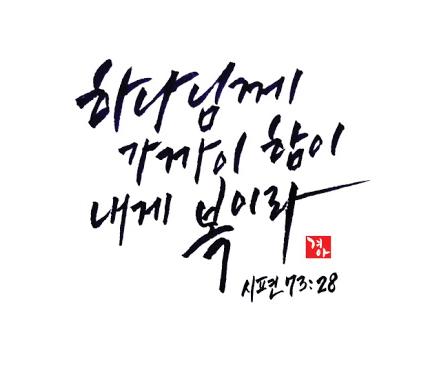 하나님께
가까이 함이
내게 복이라
경아
시편 73:28